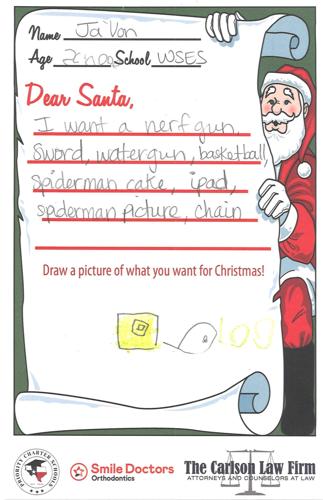 Name Ja'Von
Age School WSES
Dear Santa,
I want a nerf gun,
Sword, watergun, basketball,
Spiderman cake, ipad,
spiderman picture, chain
Draw a picture of what you want for Christmas!
PRIORITY CHARTER SCHOOLS
Smile Doctors
Orthodontics
The Carlson Law Firm
ATTORNEYS AND COUNSELORS AT LAW